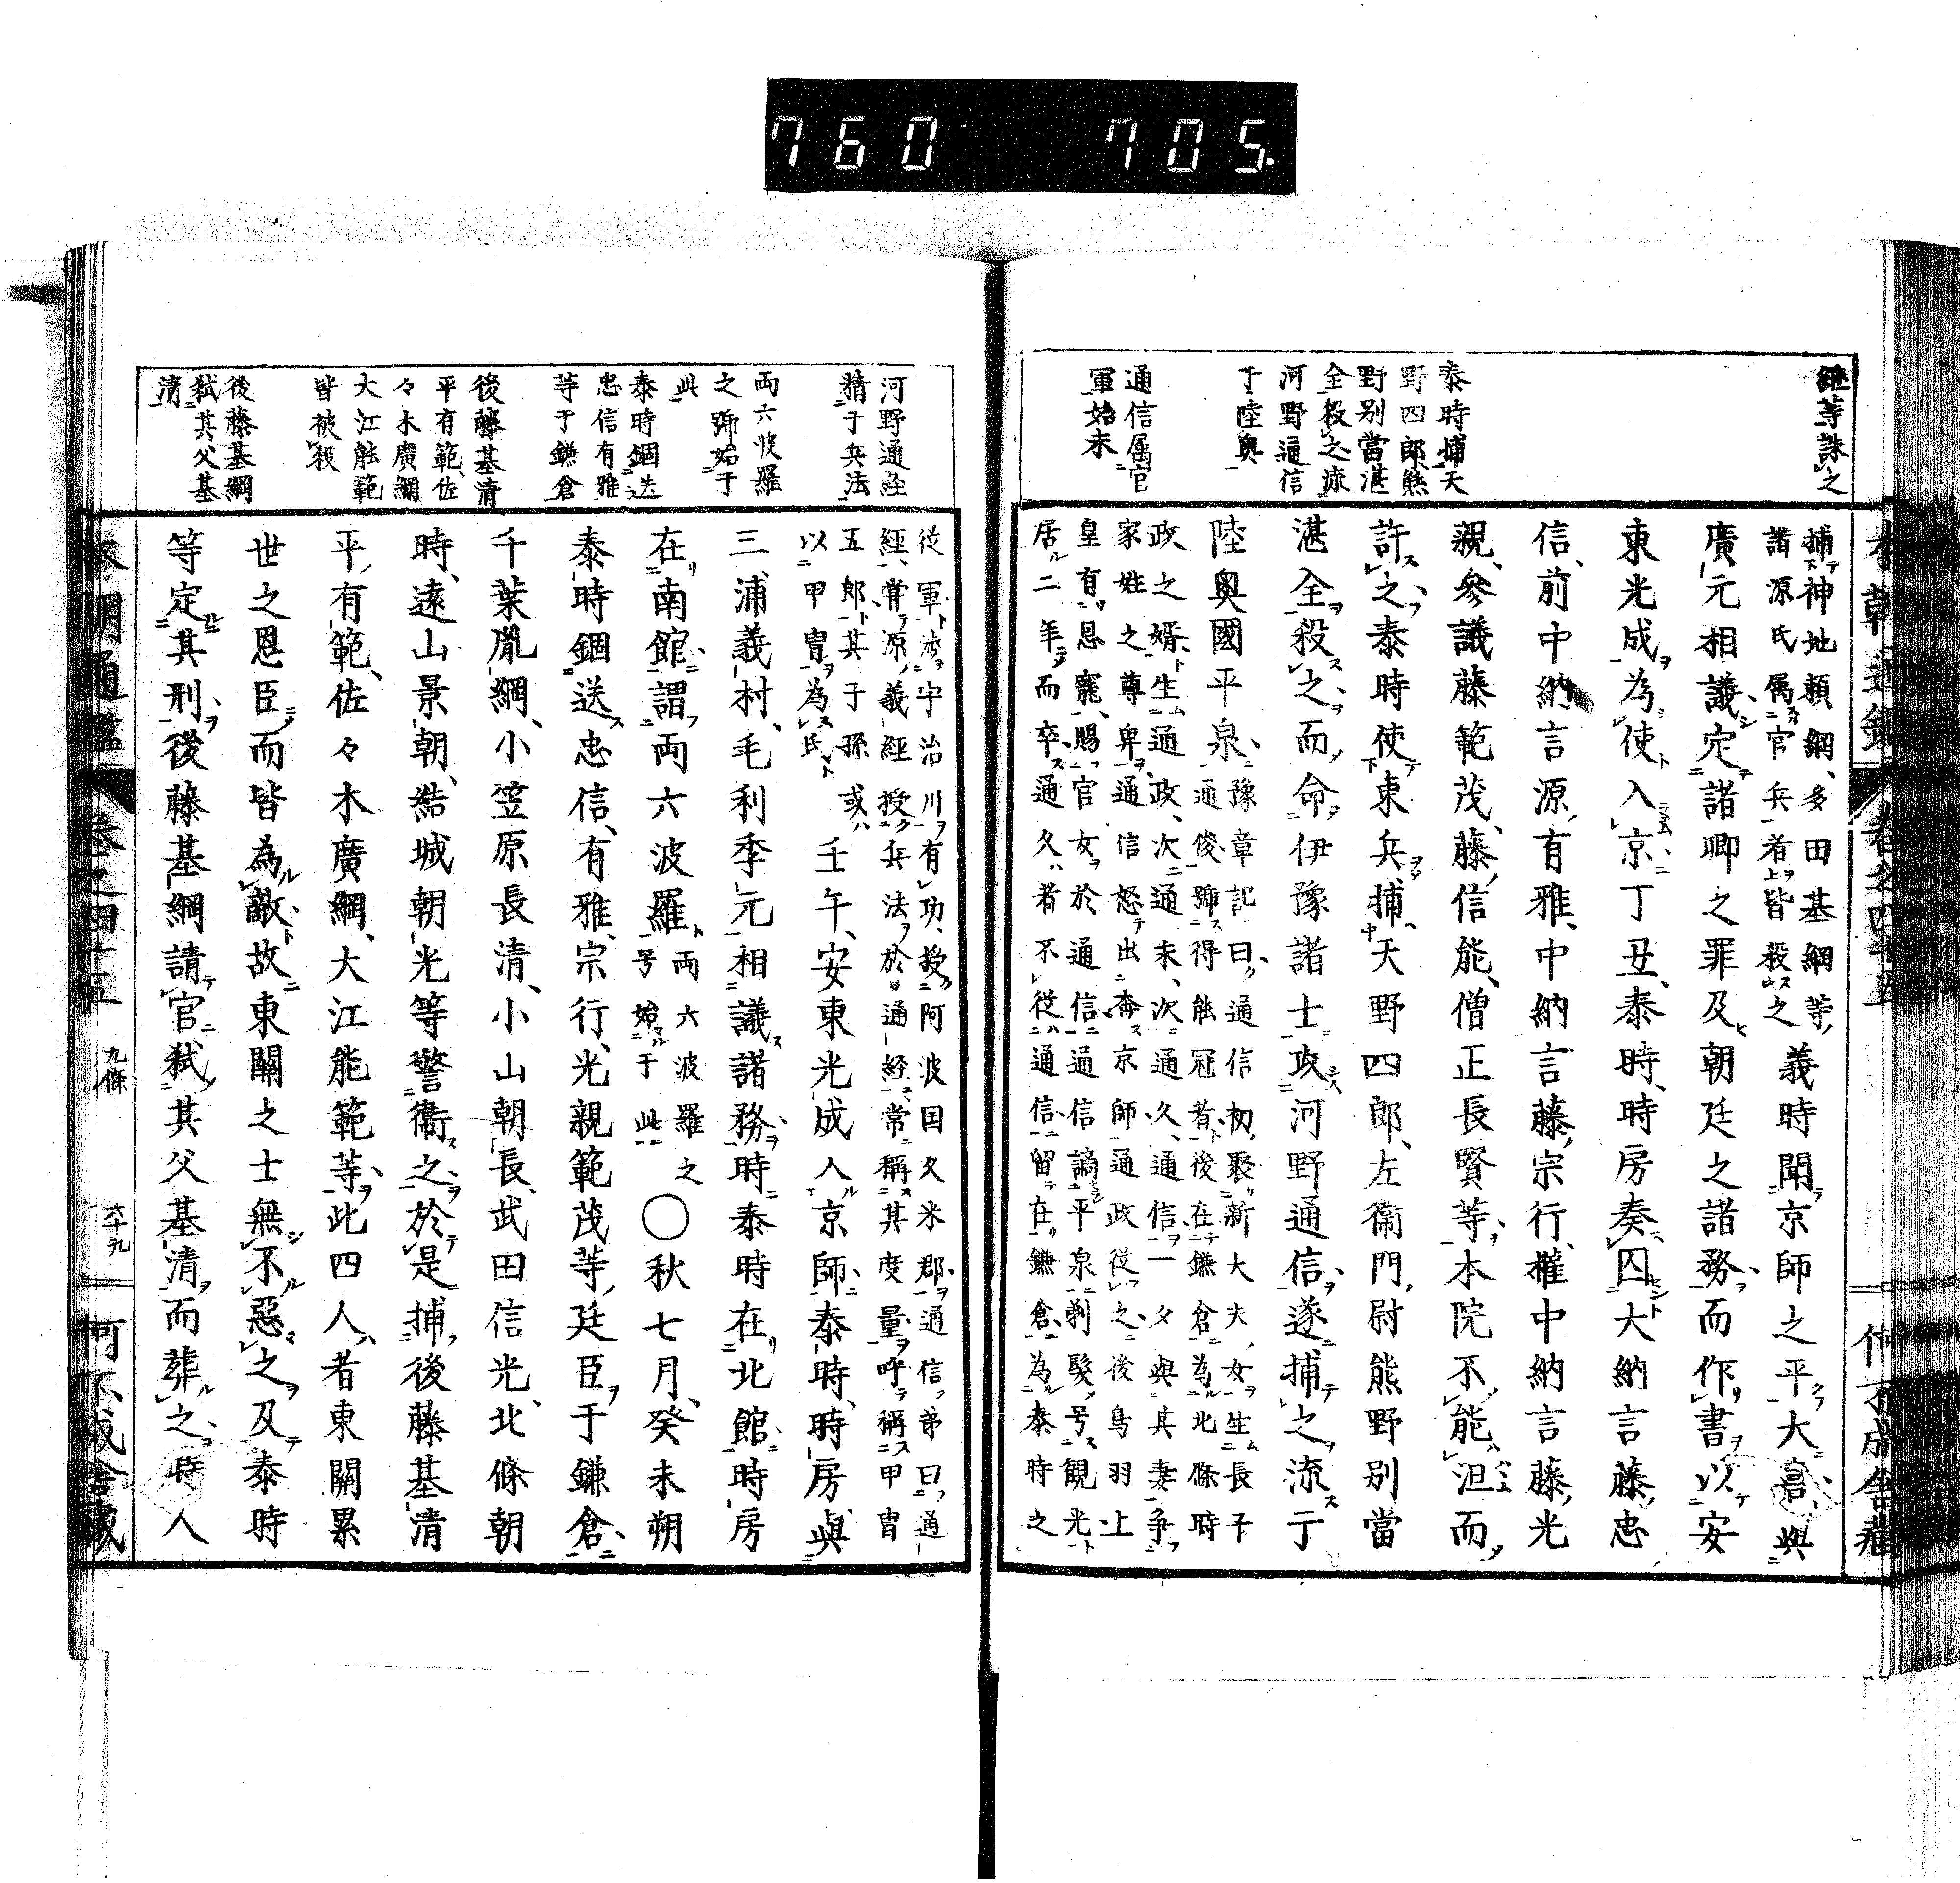 760 705.
継等誅之
泰時捕天
野四郎熊
野別當湛
全殺之流
河野通信
于陸奥
通信属官
軍始末
捕神地頼綱、多田基綱等、
諸源氏属官兵者皆殺之
義時聞京師之平大喜、與
廣元相議定諸卿之罪及朝廷之諸務而作書以安
東光成為使入京丁丑、泰時、時房奏囚大納言藤忠
信、前中納言源有雅、中納言藤宗行、權中納言藤光
親、參議藤範茂、藤信能、僧正長賢等、本院不能沮而
許之、泰時使東兵捕天野四郎、左衞門尉熊野別當
湛全殺之而命伊豫諸士攻河野通信遂捕之流于
陸奥國平泉、
豫章記曰、通信初娶新大夫女生長子
通俊、號得能冠者、後在鎌倉為北條時
政之婿、生通政、次通末、次通久、通信一夕與其妻爭
家姓之尊卑、通信怒出奔京師通政從之後鳥羽上
皇有恩寵、賜官女於通信通信謫平泉剃髮号観光
居二年而卒、通久者不從通信留在鎌倉為泰時之
本朝通鑑 卷之四十五
河野通経
精于兵法
両六波羅
之號始于
此
泰時錮送
忠信有雅
等于鎌倉
後藤基清
平有範、佐
々木廣綱
大江能範
皆被殺
後藤基綱
弑其父基
清
從軍、渡宇治川有功、授阿波国久米郡、通信弟曰通
經、常原義經授兵法於通経、常稱其度量呼稱甲冑
五郎、其子孫或
以甲冑為氏
壬午、安東光成入京師、泰時、時房、與
三浦義村、毛利季元相議諸務時泰時在北館、時房
在南館、謂両六波羅
両六波羅之
号始于此
○秋七月、癸未朔
泰時錮送忠信、有雅、宗行、光親範茂等、廷臣于鎌倉、
千葉胤綱、小笠原長清、小山朝長、武田信光、北條朝
時、遠山景朝、結城朝光等警衞之於是捕後藤基清
平有範、佐々木廣綱、大江能範等、此四人者東關累
世之恩臣而皆為敵故東關之士無不惡之及泰時
等定其刑、後藤基綱請官弑其父基清而葬之、時人
本朝通鑑 卷之四十五 九條 六十九